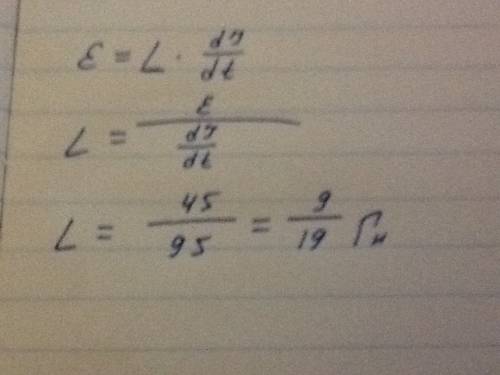 ε = L · dI/dt
L = ε / dI/dt
L = 45/95 = 9/19 Гн